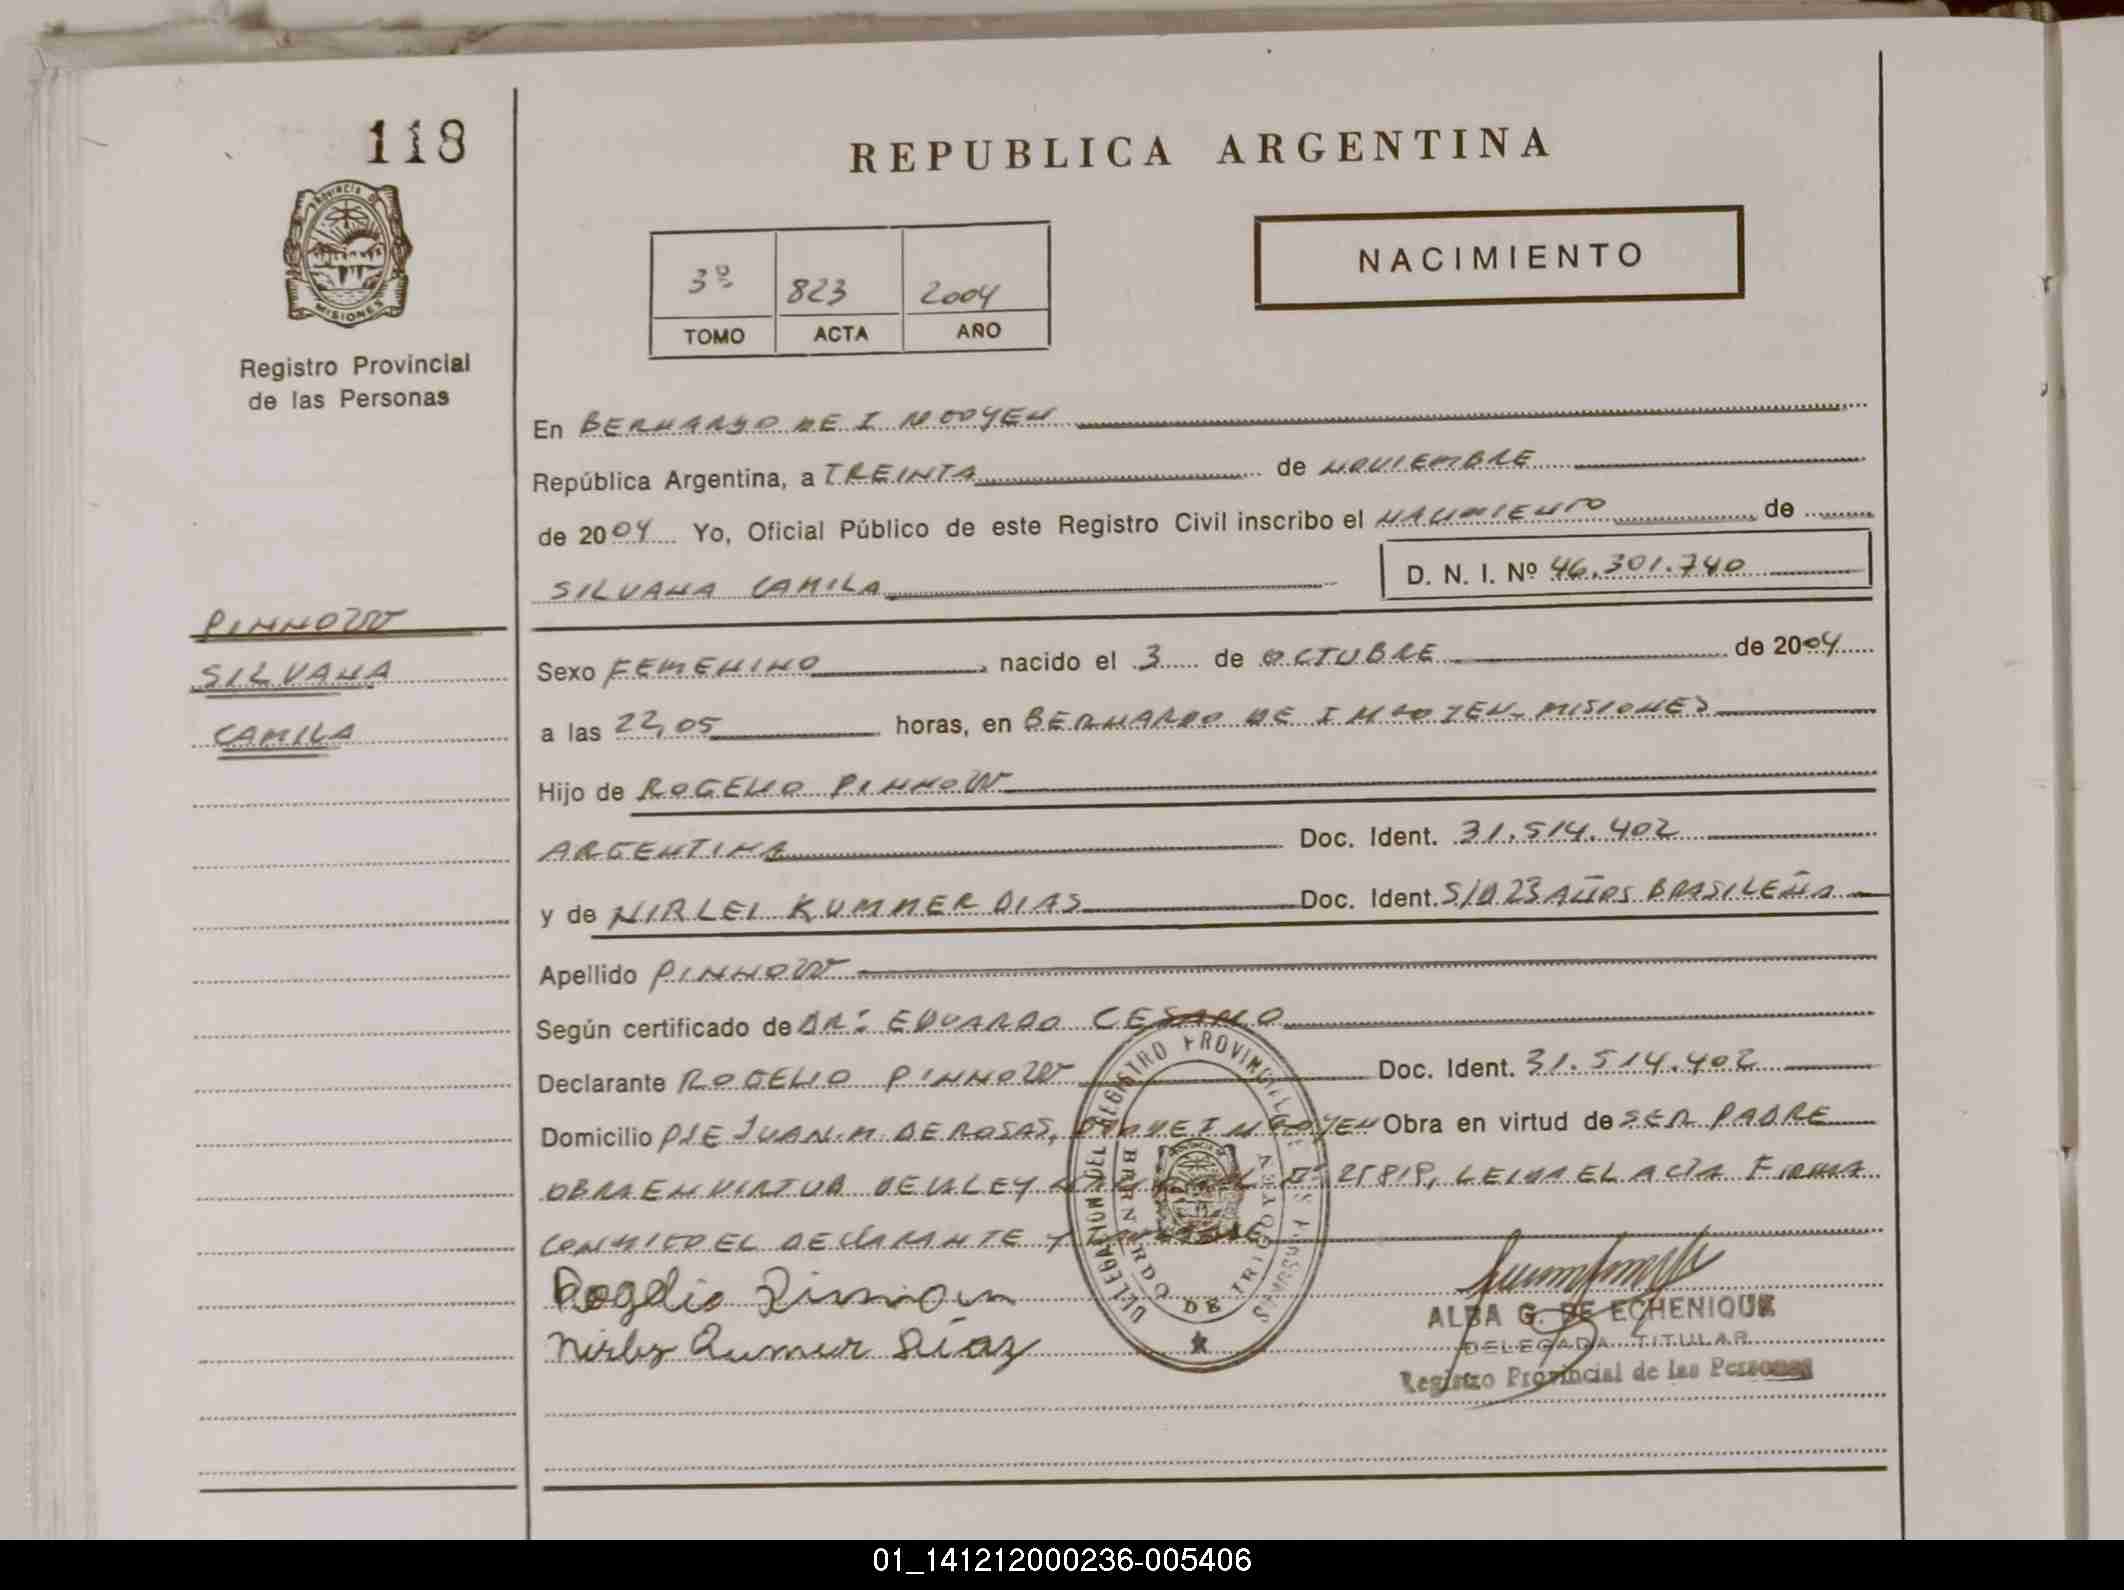 118
REPUBLICA ARGENTINA
PROVINCIA DE MISIONES
NACIMIENTO
3º 823 2004
TOMO ACTA AÑO
Registro Provincial
de las Personas
En BERNARDO DE I RGOYEN
República Argentina, a TREINTA de NOVIEMBRE
de 2004 Yo, Oficial Público de este Registro Civil inscribo el NACIMIENTO de
SILVANA CAMILA D. N. I. Nº 46.301.740
PINNOW
SILVANA
CAMILA
Sexo FEMENINO, nacido el 3 de OCTUBRE de 2004
a las 22,05 horas, en BERNARDO DE I RGOYEN- MISIONES
Hijo de ROGELIO PINNOW
ARGENTINA Doc. Ident. 31.514.402
y de NIRLEI KUMMER DIAS Doc. Ident. S/D 23 AÑOS BRASILEÑA
Apellido PINNOW
Según certificado de DR: EDUARDO CESARO
Declarante ROGELIO PINNOW Doc. Ident. 31.514.402
Domicilio PJE JUAN.M. DE ROSAS, BDO DE IRGOYEN Obra en virtud de SER PADRE
OBRA EN VIRTUD DE LA LEY Nº 25818, LEIDA EL ACTA FIRMA
CONMIGO EL DECLARANTE Y
Rogelio Pinnow
Kumer Diaz
DELEGACION DEL REGISTRO PROVINCIAL DE LAS PERSONAS
BERNARDO DE IRIGOYEN
ALBA G. DE ECHENIQUE
DELEGADA TITULAR
Registro Provincial de las Personas
01_141212000236-005406